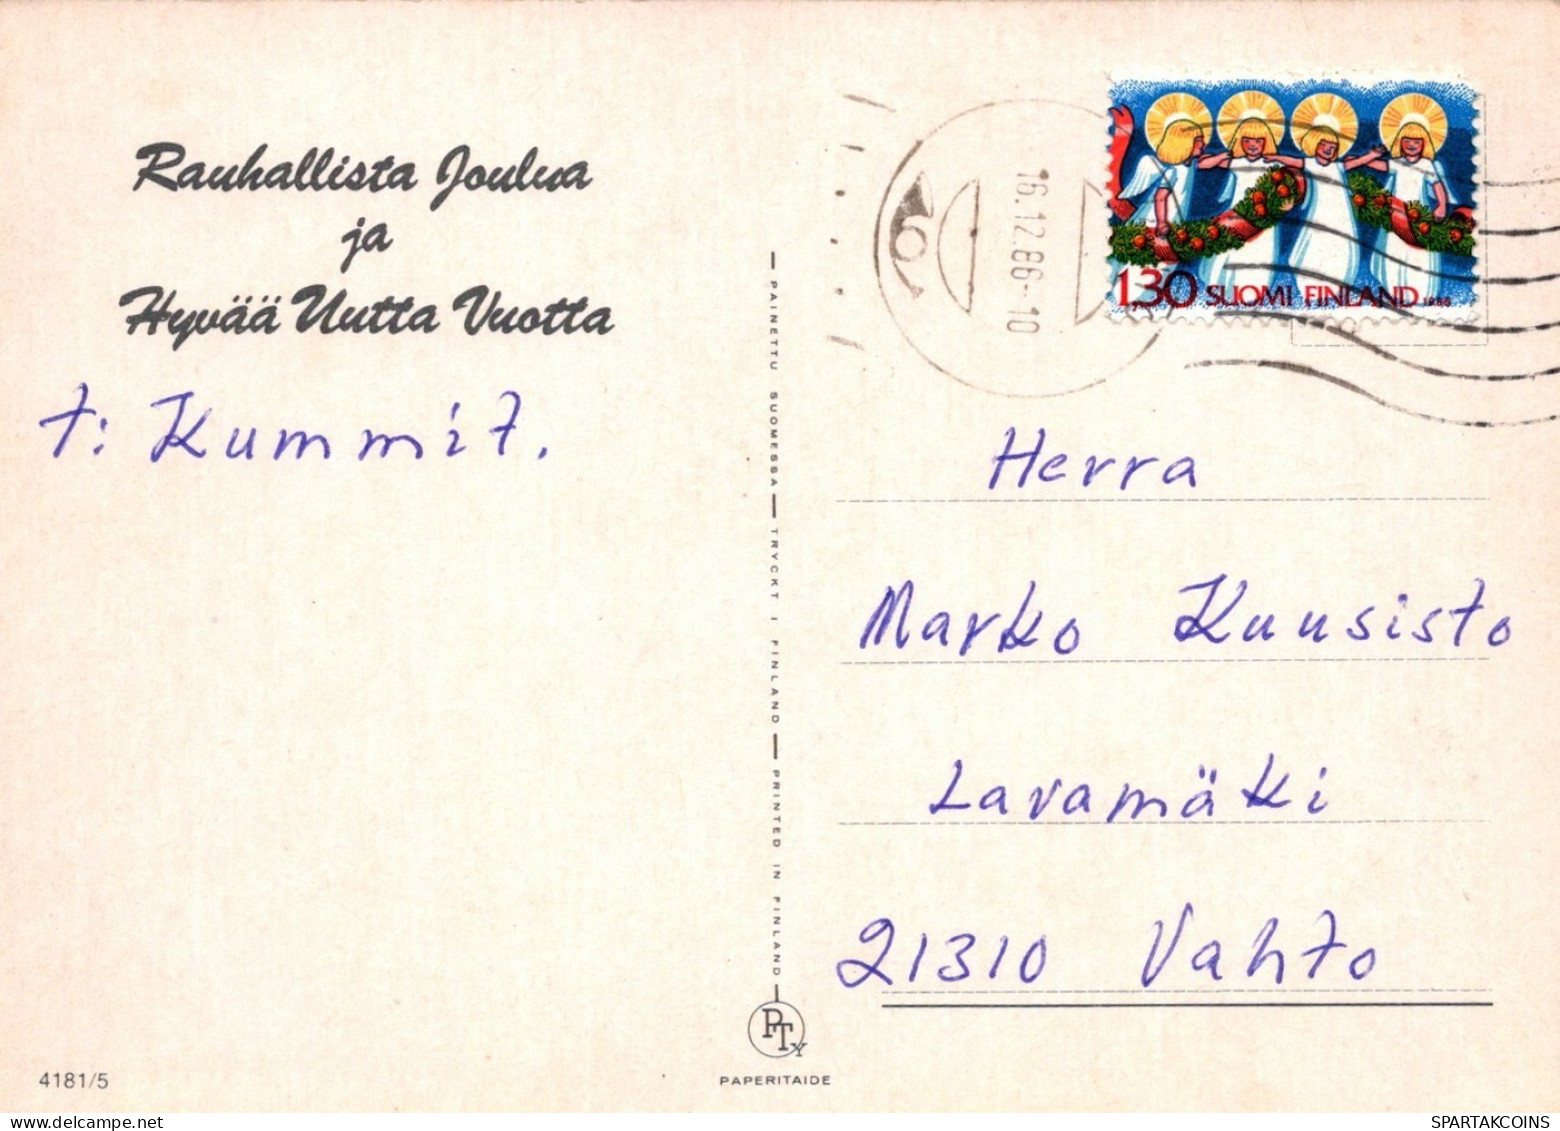 Rauhallista Joulua
ja
Hyvää Uutta Vuotta
t: Kummit.
4181/5
PAINETTU SUOMESSA — TRYCKT I FINLAND — PRINTED IN FINLAND
PTY
PAPERITAIDE
16.12.86-10
1,30 SUOMI FINLAND 1986
Herra
Marko Kuusisto
Lavamäki
21310 Vahto
SPARTAKCOINS